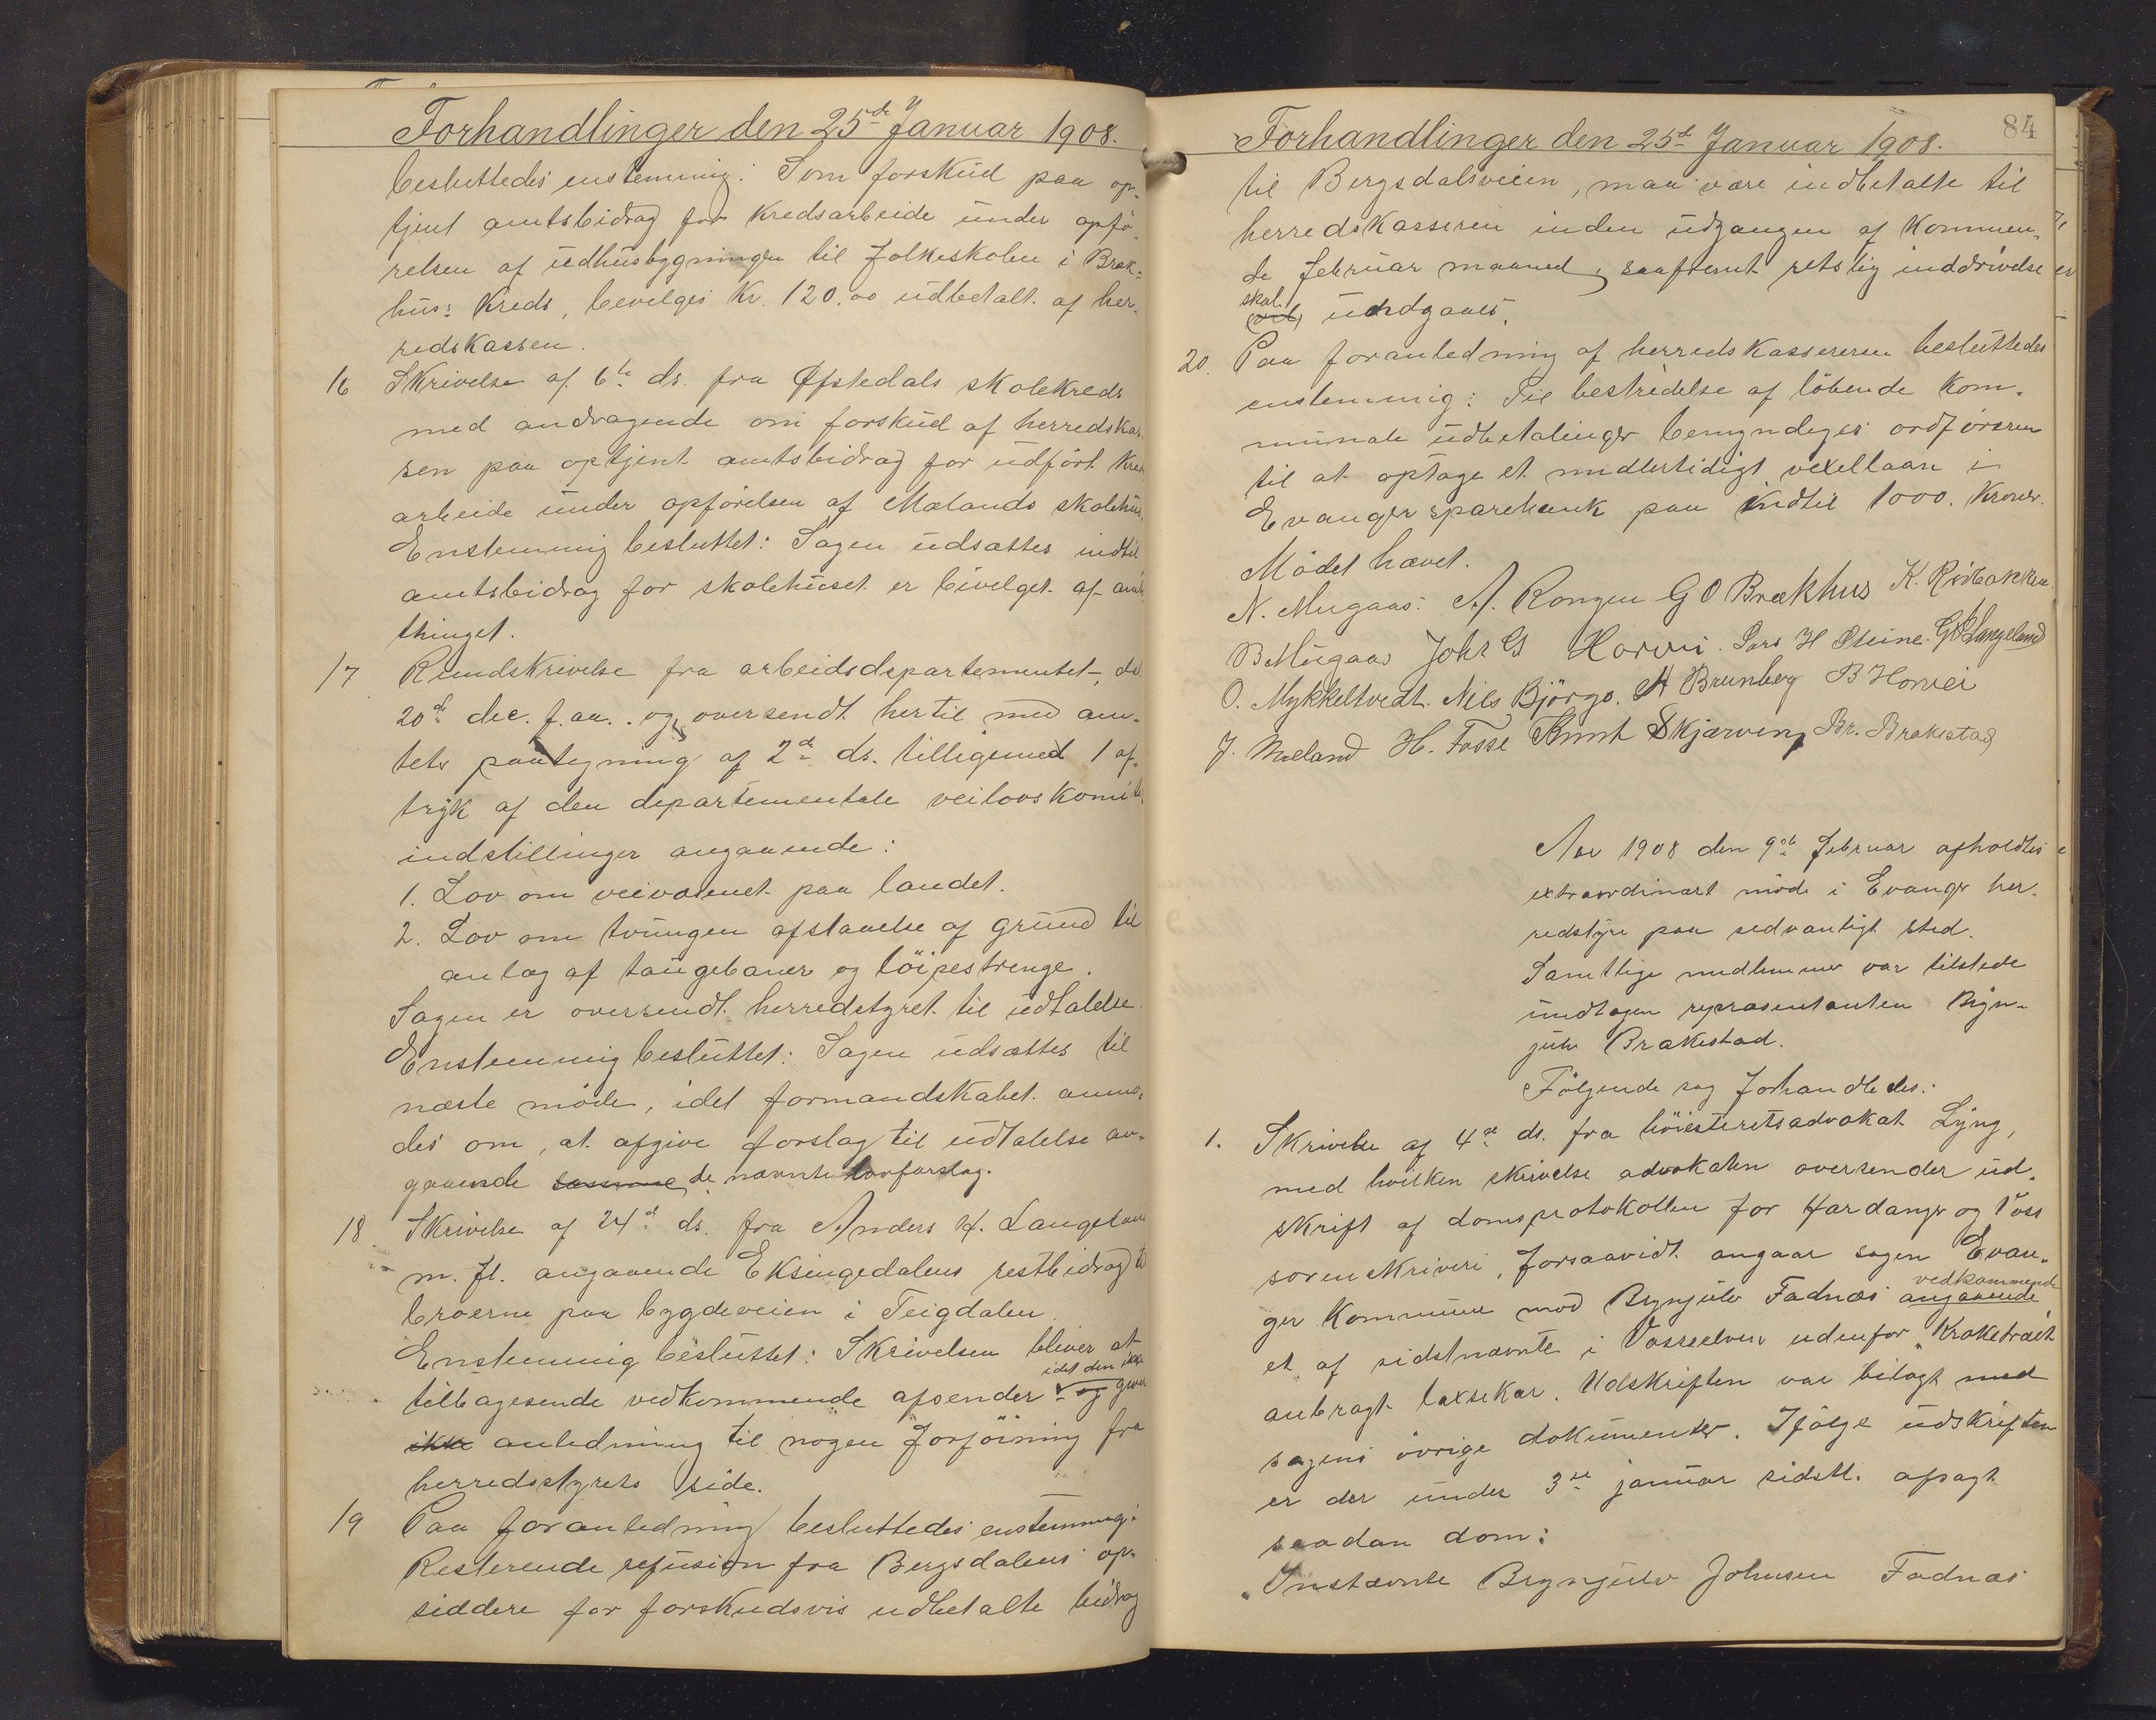 Forhandlinger den 25de Januar 1908.
besluttedes enstemmig: Som forskud paa op-
tjent amtsbidrag for kredsarbeide under opfø-
relsen af udhusbygningen til folkeskolen i Bræk-
hus: Kreds, bevilges Kr. 120.00 udbetalt af her-
redskassen.
16 Skrivelse af 6te ds. fra Øfstedals skolekreds
med andragende om forskud af herredskas
sen paa optjent amtsbidrag for udført Kreds
arbeide under opførelsen af Mælands skolehus.
Enstemmig besluttet: Sagen udsættes indtil
amtsbidrag for skolehuset er bevilget af amts
thinget.
17 Rundskrivelse fra arbeidsdepartementet, de
20de dec. f.aa. og oversendt hertil med am-
tets paategning af 2de ds. tilligemed 1 af-
tryk af den departementale veilovskomite
indstillinger angaaende:
1. Lov om veivæsenet paa landet.
2. Lov om tvungen afstaaelse af grund til
anlæg af taugebaner og løipestrenge.
Sagen er oversendt herredstyret til udtalelse.
Enstemmig besluttet: Sagen udsættes til
næste møde, idet formandskabet anmo-
des om, at afgive forslag til udtalelse an-
gaaende samme de nævnte lovforslag.
18 Skrivelse af 24de ds. fra Anders H. Langeland
m. fl. angaaende Eksingedalens restbidrag til
broerne paa bygdeveien i Teigdalen.
Enstemmig besluttet: Skrivelsen bliver at
idet den ikke
tilbagesende vedkommende afsender og giver
ikke anledning til nogen forføining fra
herredsstyrets side.
19 Paa foranledning besluttedes enstemmig:
Resterende refusion fra Bergsdalens op-
siddere for forskudsvis udbetalte bidrag
84
Forhandlinger den 25de Januar 1908.
til Bergsdalsveien, maa være indbetalte til
herredskasseren inden udgangen af kommen-
de februar maaned, saafremt retslig inddrivelse
skal
vil undgaaes.
20. Paa foranledning af herredskassereren besluttedes
enstemmig: Til bestridelse af løbende kom-
munale udbetalinger bemyndiges ordføreren
til at optage et midlertidigt vexellaan i
Evanger sparebank paa indtil 1000 Kroner.
Mødet hævet.
N. Mugaas. A. Rongen G O Brækhus K. Rødbakken
B Mugaas Johs G Horvei. Lars H Steine. G Langeland
O. Mykkeltvedt. Nils Bjørgo. A Brunborg B Horvei
J. Mæland H. Fosse Knut Skjerveng Br. Brakestad
Aar 1908 den 9de februar afholdtes
extraordinært møde i Evanger her-
redstyre paa sedvanligt sted.
Samtlige medlemmer var tilstede
undtagen repræsentanten Bryn-
julv Brakestad.
Følgende sag forhandledes:
1. Skrivelse af 4de ds. fra høiesteretsadvokat Lyng,
med hvilken skrivelse advokaten oversender ud-
skrift af domsprotokollen for Hardanger og Voss
sorenskriveri, forsaavidt angaar sagen Evan-
vedkommende
ger Kommune mod Brynjulv Fadnæs angaaende
et af sidstnævnte i Vosseelven udenfor "Kraketræet"
anbragt laxsekar. Udskriften var bilagt med
sagens øvrige dokumenter. Ifølge udskriften
er der under 3de januar sidstl. afsagt
saadan dom:
Indstævnte Brynjulv Johnsen Fadnæs